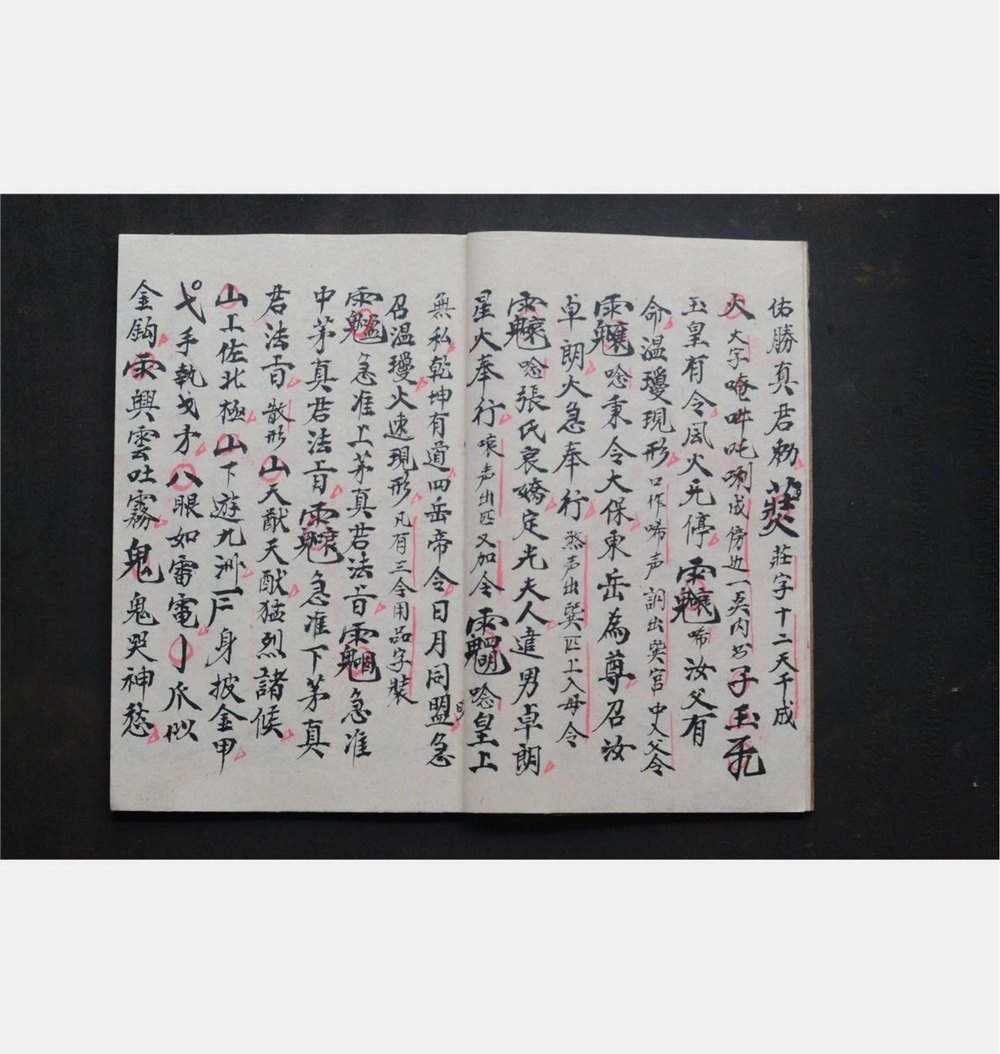 佑勝真君勅 莊字十二天干成
火 大字唵吽吒唎成傍边一吴内書子玉
玉皇有令風火无停 唏汝父有
命温瓊現形 口作唏声 詞出 宫中入父令
唸東令大保東岳為尊召汝
卓朗火急奉行 煞声出 匹上入母令
唸張氏哀嬌定光夫人違男卓朗
星火奉行 哀声出匹又加令 唸皇上
無私乾坤有道四岳帝令日月同盟急
召温瓊火速現形 凡有三令用品字裝
急准上茅真君法旨 急准
中茅真君法旨 急准下茅真
君法旨 散形 山天猷天猷猛烈諸候
山上佐北極山下遊九洲 身披金甲
弋手執戈矛八眼如雷電亅爪似
金鈎 興雲吐霧鬼鬼哭神愁